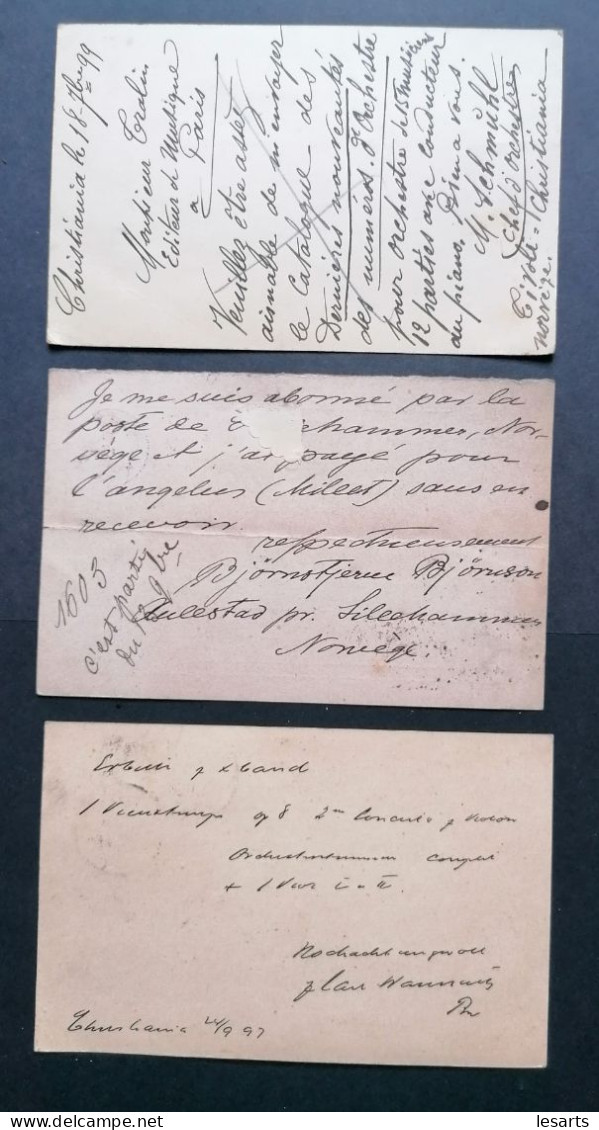 Christiania le 18 7bre 99
Monsieur
Editeur de Musique
à
Paris
Veuillez être assez
aimable de m'envoyer
le Catalogue des
Dernières nouveautés
des numéros d'Orchestre
pour orchestre de 15 musiciens
12 parties avec conducteur
du piano. Bien a vous.
M. Schmühl
Chef d'orchestre
Tivoli = Christiania
norvège.
Je me suis abonné par la
poste de hammer, Nor-
vège et j'ai payé pour
l'angelus (Millet) sans en
recevoir.
respectueusement
Björnstjerne Björnson
Aulestad pr. Lillehammer
Norvège.
1603
c'est parti
du
Erbitte
1 Vieuxtemps op 8 2m
complet
+ 1 Viol I - II.
Hochachtungsvoll
Carl Warmuth
Christiania 9 97
delcampe.net
lesarts